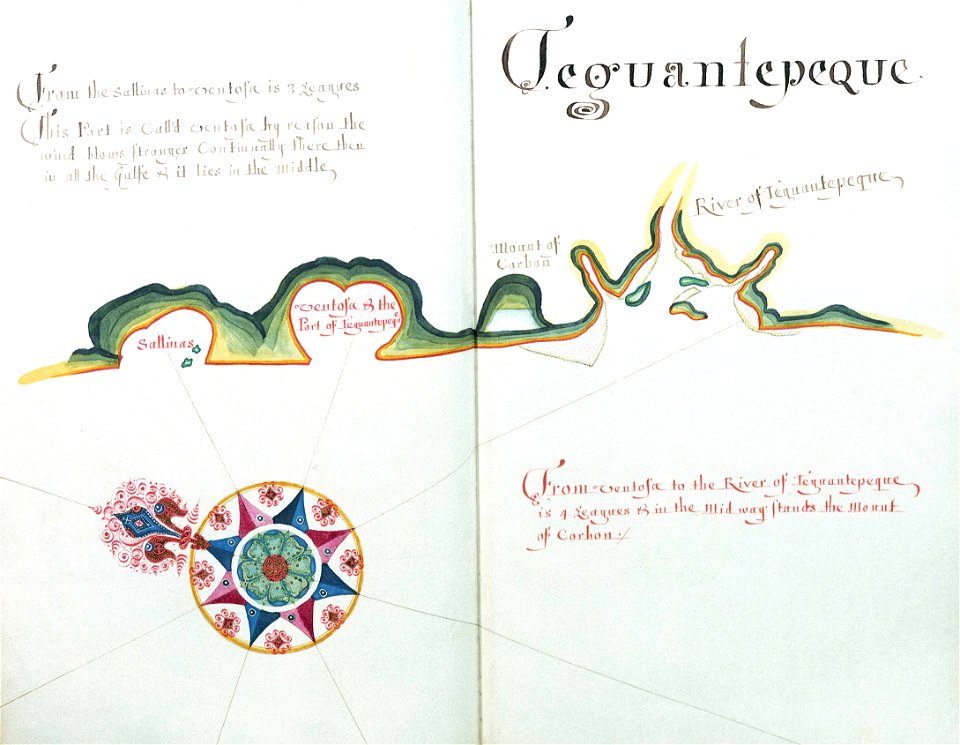 From the Sallinas to Ventosa is 3 Leagues
This Port is Call'd Ventosa by reason the
wind blows stronger Continually there then
in all the Gulfe & it lies in the Middle
Teguantepeque.
River of Teguantepeque
Mount of
Corbon
Ventosa & the
Port of Teguantepeq
Sallinas
From Ventosa to the River of Teguantepeque
is 4 Leagues & in the Mid way stands the Mount
of Corbon